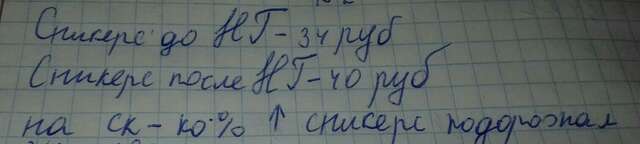 Сникерс до НГ - 34 руб
Сникерс после НГ - 40 руб
на ск-ко % ↑ сникерс подорожал